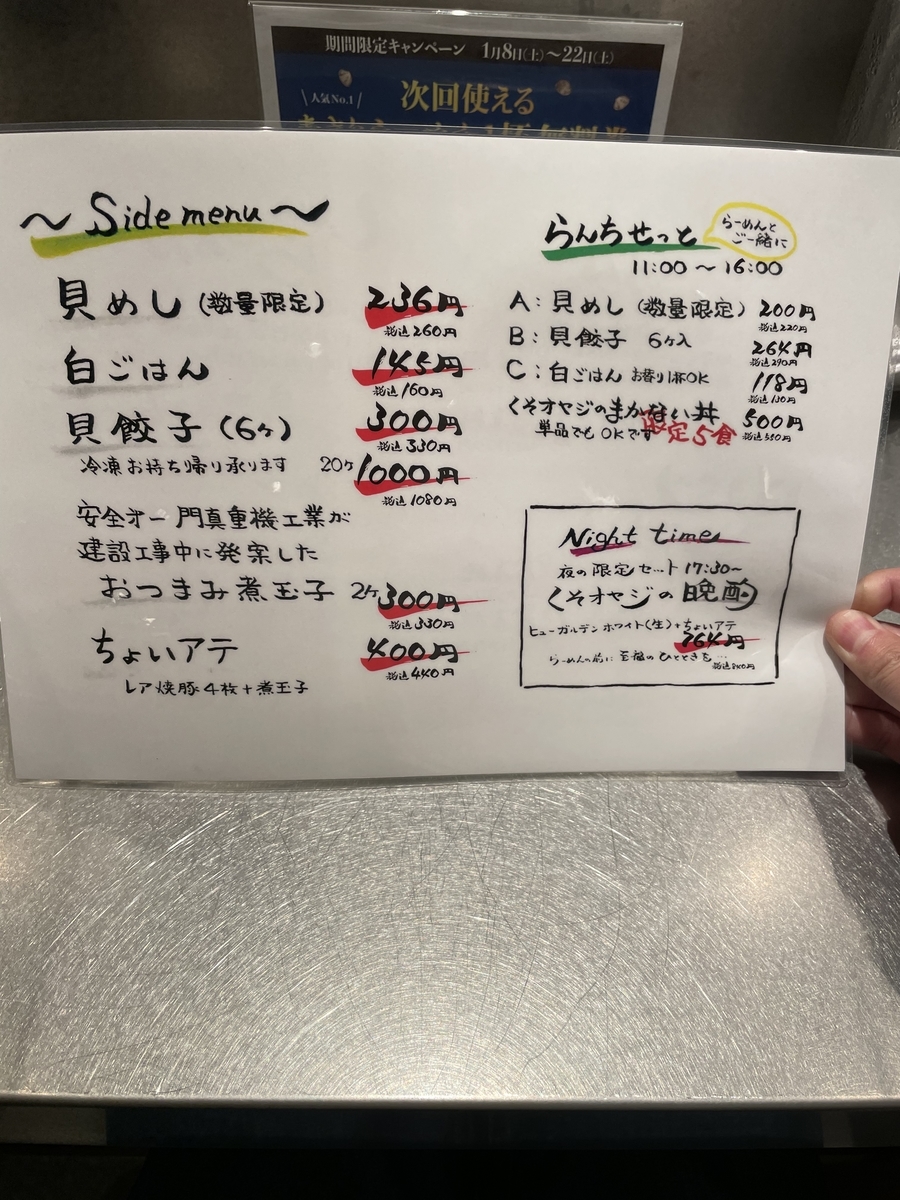 期間限定キャンペーン 1月8日(土)〜22日(土)
人気No.1
次回使える
〜 Side menu 〜
貝めし (数量限定) 236円
税込260円
白ごはん 145円
税込160円
貝餃子 (6ヶ) 300円
税込330円
冷凍お持ち帰り承ります 20ヶ 1000円
税込1080円
安全オー門真重機工業が
建設工事中に発案した
おつまみ煮玉子 2ヶ 300円
税込330円
ちょいアテ 400円
税込440円
レア焼豚4枚+煮玉子
らんちせっと
らーめんと
ご一緒に
11:00 〜 16:00
A: 貝めし (数量限定) 200円
税込220円
B: 貝餃子 6ヶ入 264円
税込290円
C: 白ごはん お替り1杯OK 118円
税込130円
くそオヤジのまかない丼 500円
税込550円
単品でもOKです
限定5食
Night time
夜の限定セット 17:30〜
くそオヤジの晩酌
ヒューガルデンホワイト(生)+ちょいアテ
764円
らーめんの前に至福のひとときを…
税込840円